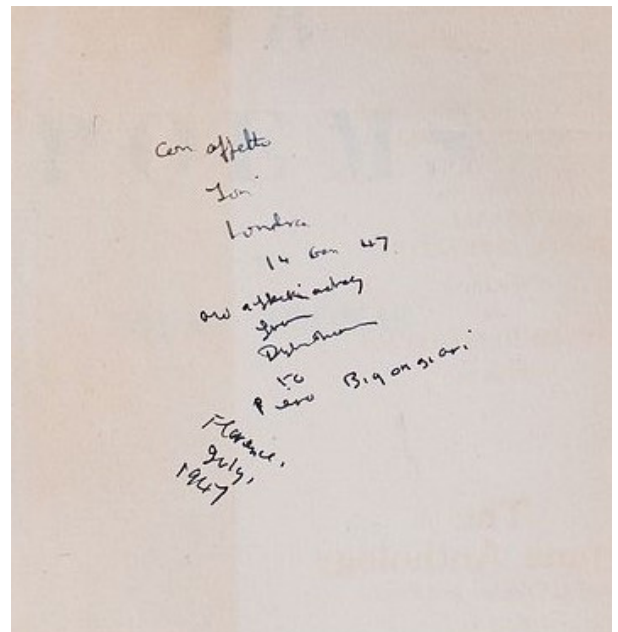 Con affetto
Londra
14 Gen 47
and affectionately
from
Dylan Thomas
to
Piero Bigongiari
Florence,
July,
1947